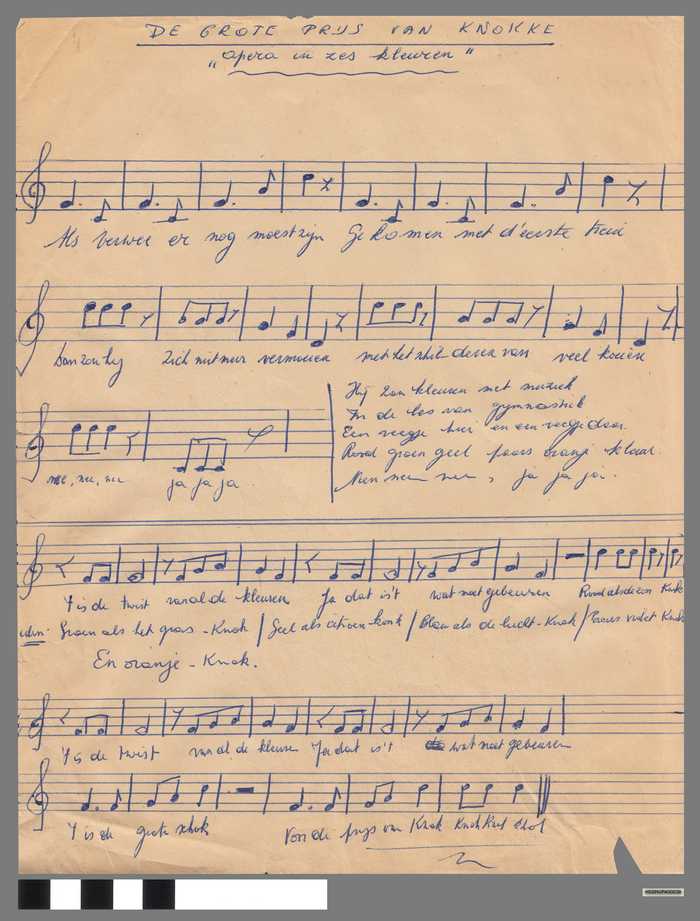 DE GROTE PRIJS VAN KNOKKE
"Opera in zes kleuren"
Als Verwee er nog moest zijn Gekomen met d'eerste trein
Dan zou hij zich niet meer vermoeien met het schilderen van veel koeien
nee, nee, nee ja ja ja
Hij zou kleuren met muziek
In de les van gymnastiek
Een veegje hier en een veegje daar
Rood groen geel paars oranje klaar.
Neen neen neen, ja ja ja.
't is de twist van al de kleuren Ja dat is 't wat moet gebeuren Rood als de
Groen als het gras - Knok / Geel als citroen - Knok / Blauw als de lucht - Knok / Paars violet Knok
En oranje - Knok.
't is de twist van al de kleuren Ja dat is 't wat moet gebeuren
't is de grote schok Von de prijs van Knok Knok